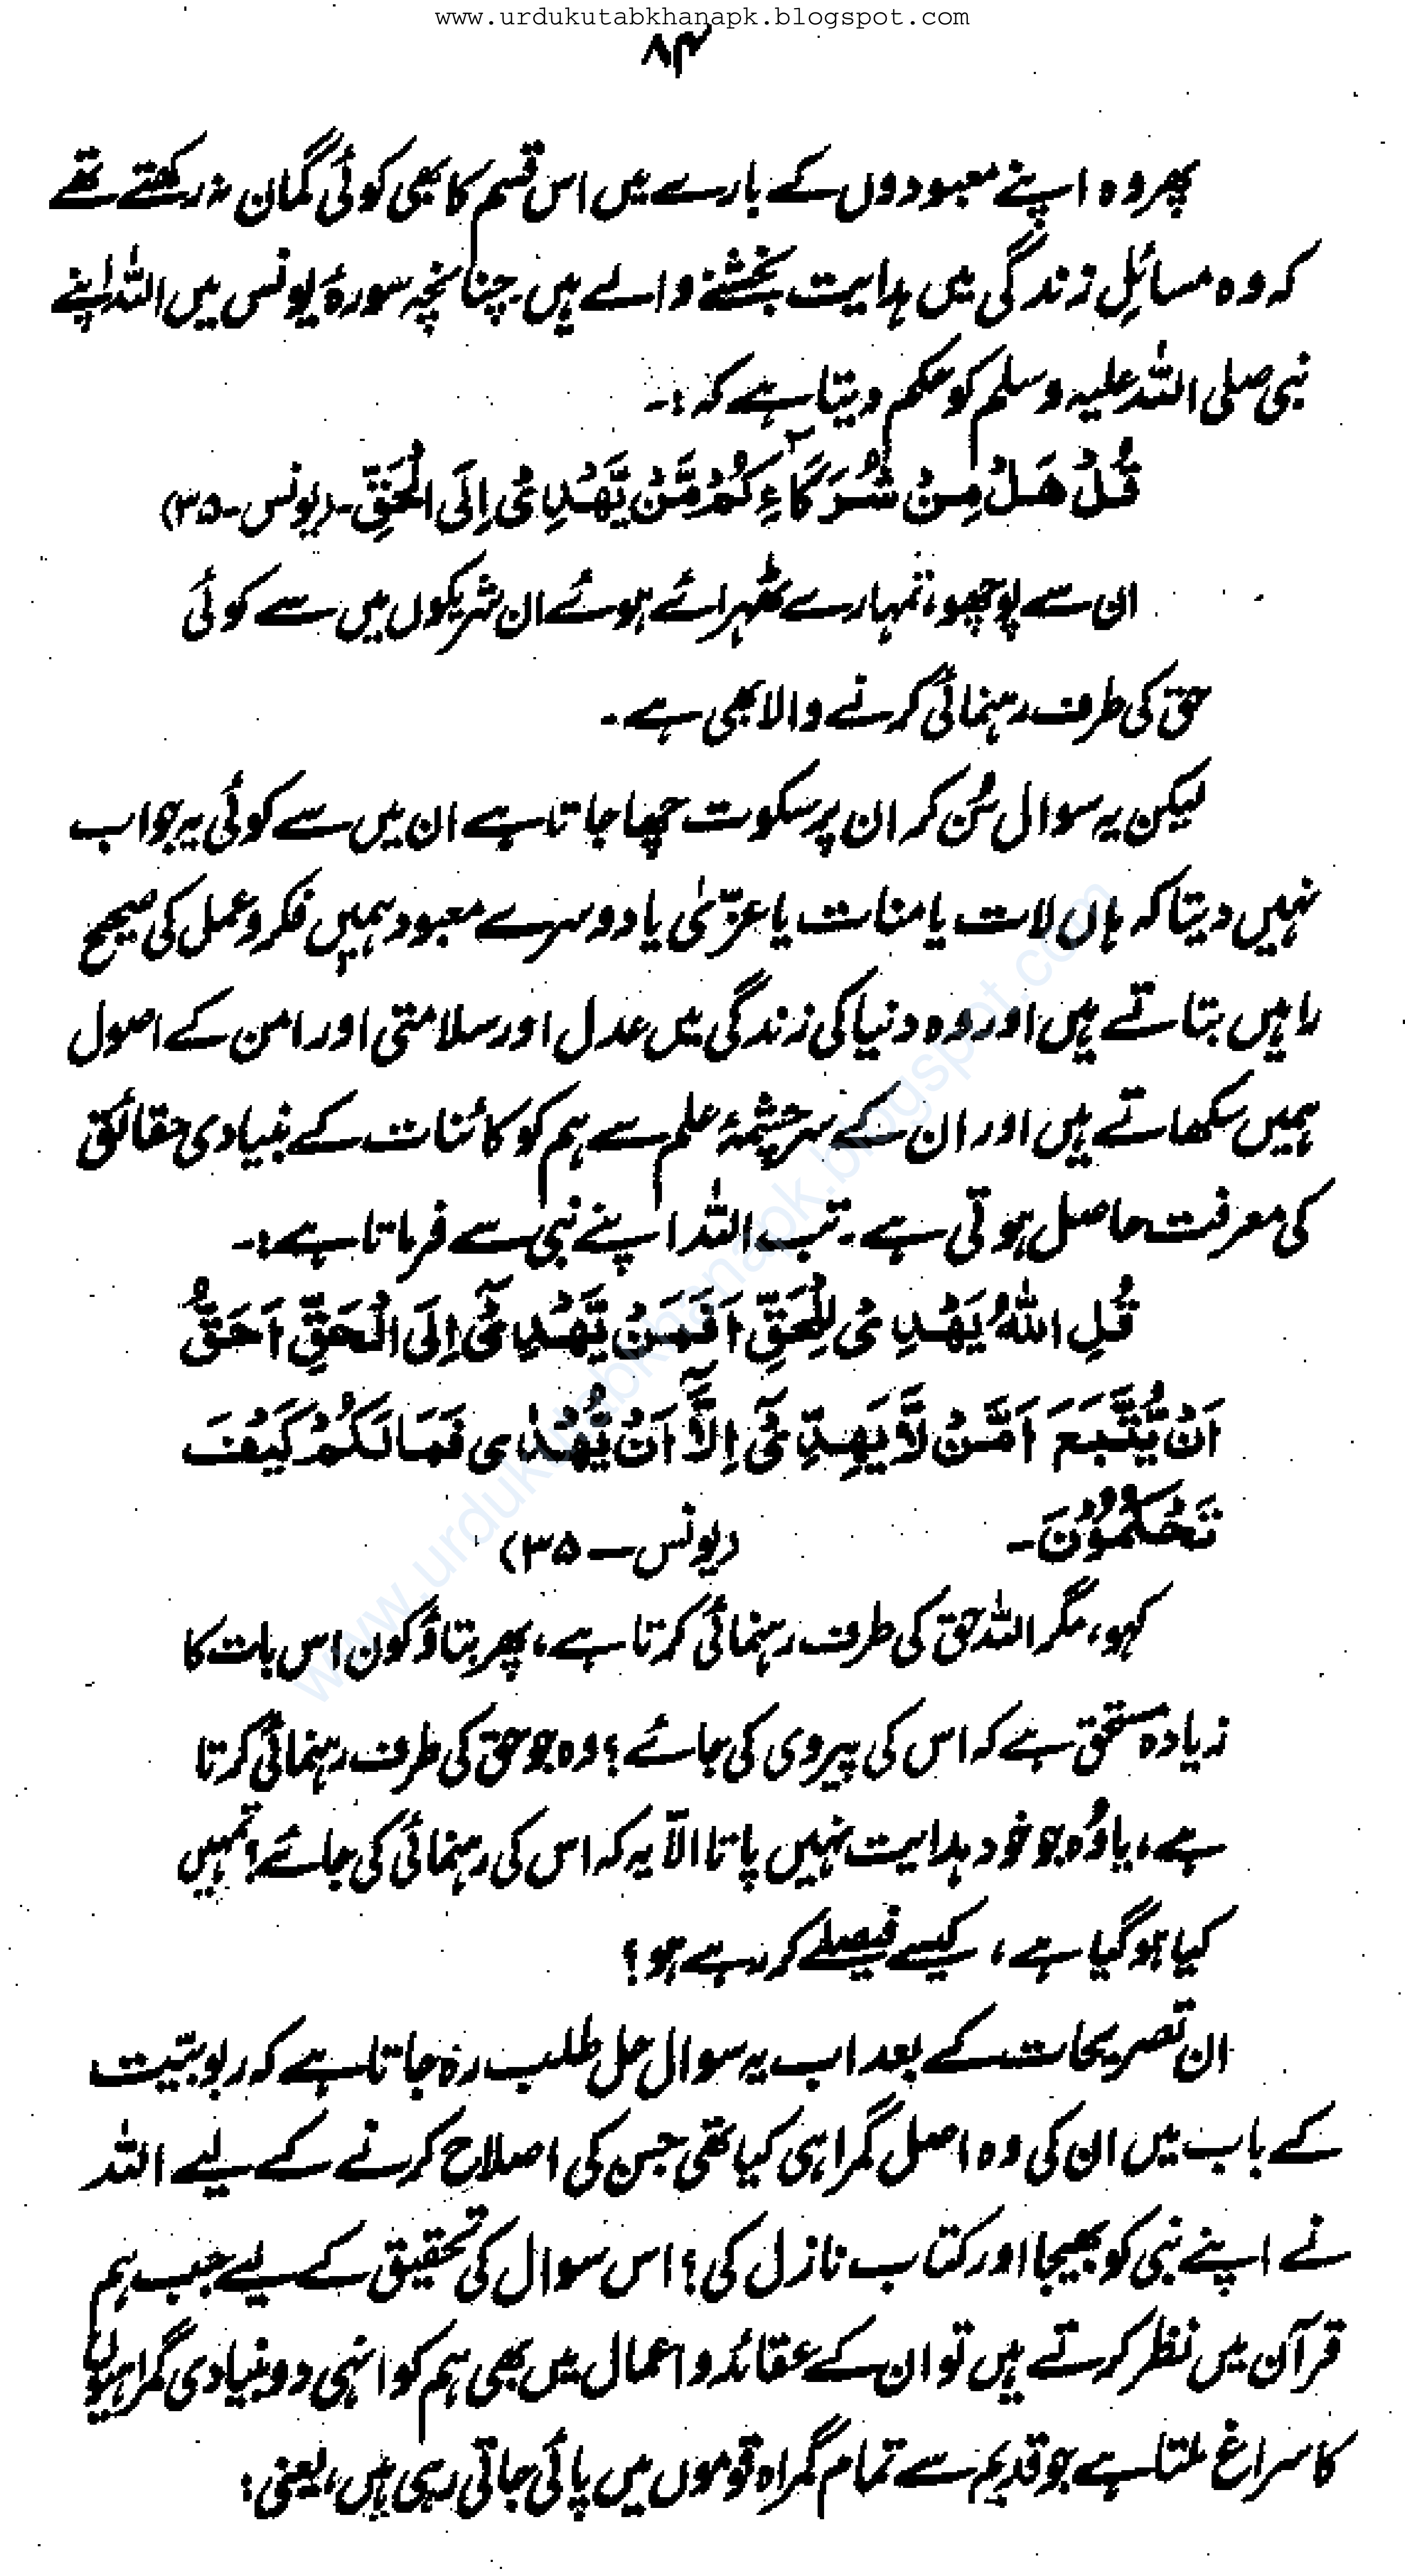 www.urdukutabkhanapk.blogspot.com
۸۴
پھر وہ اپنے معبودوں کے بارے میں اس قسم کا بھی کوئی گمان نہ رکھتے تھے
کہ وہ مسائلِ زندگی میں ہدایت بخشنے والے ہیں۔ چنانچہ سورۂ یونس میں اللہ اپنے
نبی صلی اللہ علیہ وسلم کو حکم دیتا ہے کہ :۔
قُلْ هَلْ مِنْ شُرَكَآءِكُمْ مَّنْ يَّهْدِيْ اِلَى الْحَقِّ۔ (یونس۔۳۵)
ان سے پوچھو، تمہارے ٹھہرائے ہوئے ان شریکوں میں سے کوئی
حق کی طرف رہنمائی کرنے والا بھی ہے۔
لیکن یہ سوال سُن کر ان پر سکوت چھا جاتا ہے ان میں سے کوئی یہ جواب
نہیں دیتا کہ ہاں لات یا منات یا عزّیٰ یا دوسرے معبود ہمیں فکر و عمل کی صحیح
راہیں بتاتے ہیں اور وہ دنیا کی زندگی میں عدل اور سلامتی اور امن کے اصول
ہمیں سکھاتے ہیں اور ان کے سرچشمۂ علم سے ہم کو کائنات کے بنیادی حقائق
کی معرفت حاصل ہوتی ہے۔ تب اللہ اپنے نبی سے فرماتا ہے:۔
قُلِ اللّٰهُ يَهْدِيْ لِلْحَقِّ اَفَمَنْ يَّهْدِيْٓ اِلَى الْحَقِّ اَحَقُّ
اَنْ يُّتَّبَعَ اَمَّنْ لَّا يَهِدِّيْٓ اِلَّآ اَنْ يُّهْدٰى فَمَا لَكُمْ كَيْفَ
تَحْكُمُوْنَ۔ (یونس — ۳۵)
کہو، مگر اللہ حق کی طرف رہنمائی کرتا ہے، پھر بتاؤ کون اس بات کا
زیادہ مستحق ہے کہ اس کی پیروی کی جائے؟ وہ جو حق کی طرف رہنمائی کرتا
ہے، یا وُہ جو خود ہدایت نہیں پاتا الّا یہ کہ اس کی رہنمائی کی جائے؟ تمہیں
کیا ہو گیا ہے، کیسے فیصلے کر رہے ہو؟
ان تصریحات کے بعد اب یہ سوال حل طلب رہ جاتا ہے کہ ربوبیّت
کے باب میں ان کی وہ اصل گمراہی کیا تھی جس کی اصلاح کرنے کے لیے اللہ
نے اپنے نبی کو بھیجا اور کتاب نازل کی؟ اس سوال کی تحقیق کے لیے جب ہم
قرآن میں نظر کرتے ہیں تو ان کے عقائد و اعمال میں بھی ہم کو انہی دو بنیادی گمراہیوں
کا سراغ ملتا ہے جو قدیم سے تمام گمراہ قوموں میں پائی جاتی رہی ہیں، یعنی:
www.urdukutabkhanapk.blogspot.com